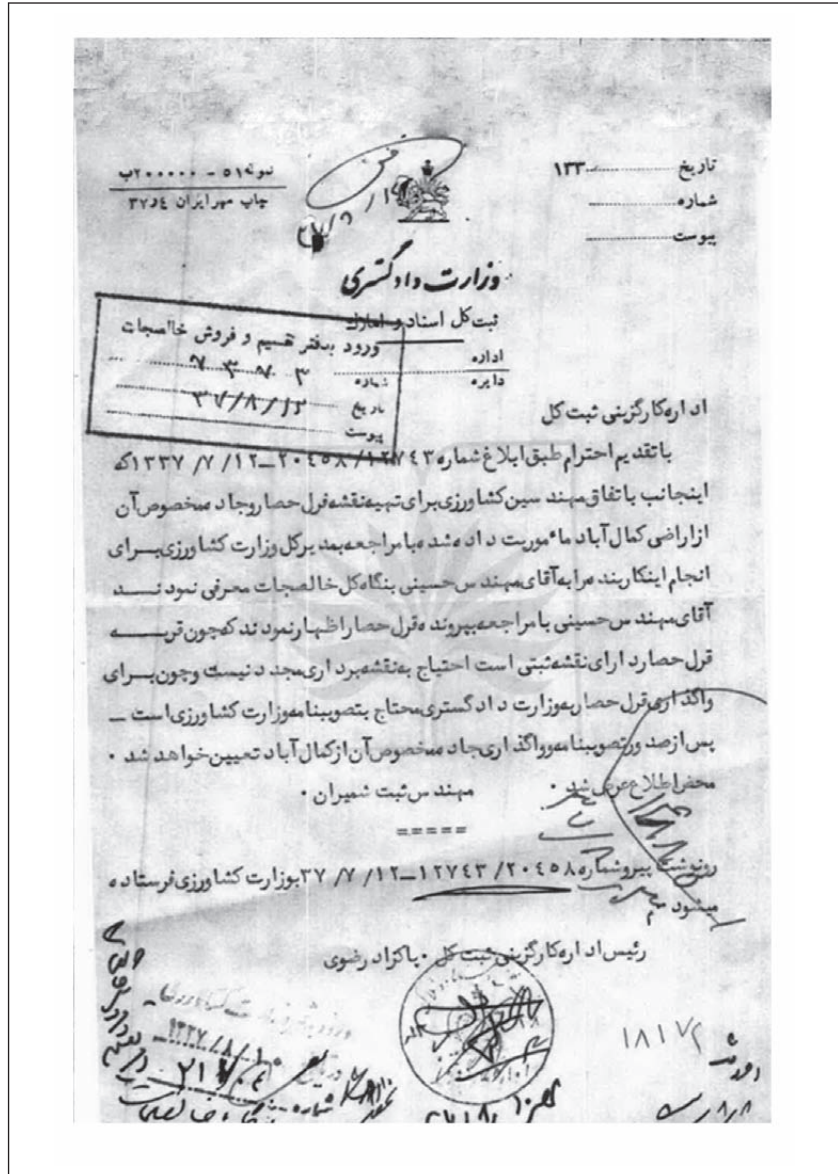 تاریخ ............۱۳۳
شماره ............
پیوست ............
نمونه ۵۱ - ۲۰۰۰۰۰ب
چاپ مهر ایران ۳۷ر۴
۳۷/۹/۱
وزارت دادگستری
ثبت کل اسناد و املاک
اداره
دایره
ورود بدفتر تقسیم و فروش خالصجات
شماره ۷۳۷۳
تاریخ ۳۷/۸/۱۲
پیوست
اداره کارگزینی ثبت کل
با تقدیم احترام طبق ابلاغ شماره ۱۲۷۴۳/۲۰۴۵۸ـ۱۲/۷/۱۳۳۷ که
اینجانب باتفاق مهندسین کشاورزی برای تهیه نقشه قزل حصار وجاده مخصوص آن
از اراضی کمال آباد مأموریت داده شده با مراجعه بمدیرکل وزارت کشاورزی بـرای
انجام اینکار بنده را به آقای مهندس حسینی بنگاه کل خالصجات معرفی نمودنـد
آقای مهندس حسینی با مراجعه بپرونده قزل حصار اظهار نمودند که چون قریـه
قزل حصار دارای نقشه ثبتی است احتیاج به نقشه برداری مجدد نیست وچون بـرای
واگذاری قزل حصار به وزارت دادگستری محتاج بتصویبنامه وزارت کشاورزی است ـ
پس از صدور تصویبنامه وواگذاری جاده مخصوص آن از کمال آباد تعیین خواهد شد ۰
محض اطلاع عرض شد ۰ مهندس ثبت شمیران ۰
=====
رونوشت پیرو شماره ۲۰۴۵۸/۱۲۷۴۳ـ۱۲/۷/۳۷ بوزارت کشاورزی فرستاده
میشود
رئیس اداره کارگزینی ثبت کل ۰ پاکزاد رضوی
۱۳۳۷/۸/۱۰
شماره
۱۸۱۷۲